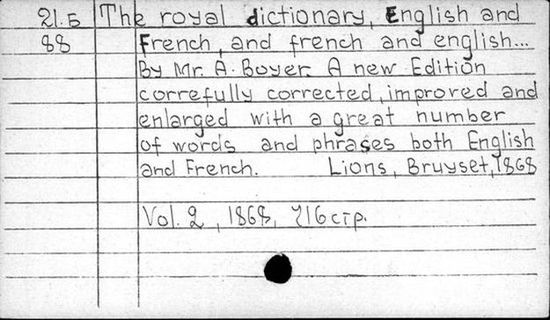 21.Б The royal dictionary, English and
88 French, and french and english...
By Mr. A. Boyer. A new Edition
correfully corrected, improred and
enlarged with a great number
of words and phrases both English
and French. Lions, Bruyset, 1868
Vol. 2, 1868, 716 стр.